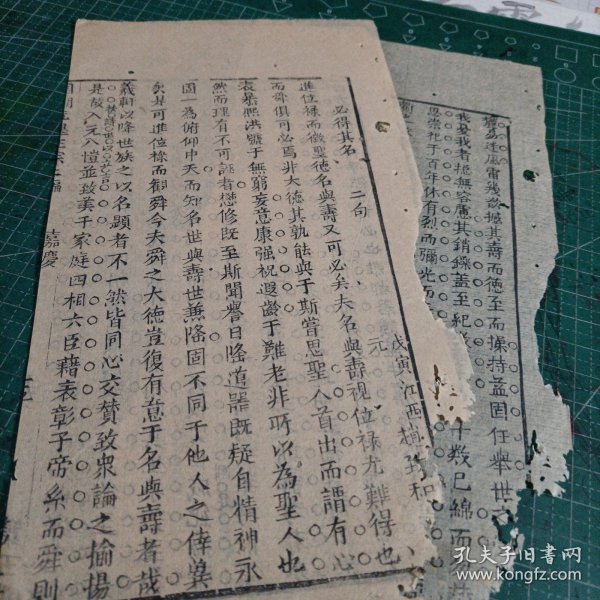 必得其名 二句
元
戊寅江西趙致和
進位祿而徵聖德名與壽又可必矣夫名與壽視位祿尤難得也
而帝俱可必焉非大德其孰能與于斯嘗思聖人首出而謂有心
表暴熙洪號于無窮妄意康强祝遐齡于難老非所以為聖人也
然而理有不可誣者懋修既至斯聞譽日隆道器既凝自精神永
固一為俯仰中天而知名世與壽世兼隆固不同于他人之倖冀
矣其可進位祿而觀舜今夫舜之大德豈復有意于名與壽者哉
義軒以降世族之以名顯者不一然皆同心交贊致衆論之揄揚
是故八元八愷並致美于家庭四相六臣藉表彰于帝系而舜則
嘉慶
雖烈風雷殘故撼其壽而德至而操持益固任舉世之
我憂我者極無容慮其銷鑠蓋至紀
思崇祀于百年休有烈而彌光而
十數已綿而
孔夫子旧書网
www.kongfz.com